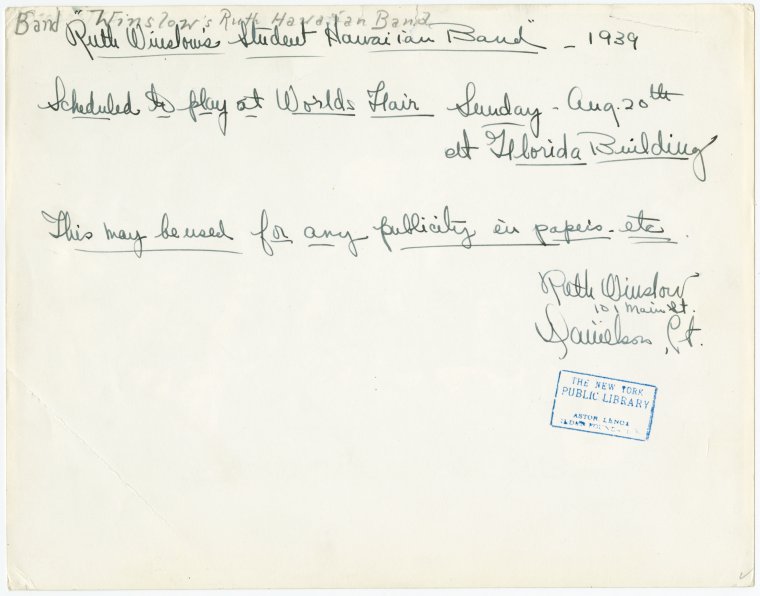 Band "Winslow's Ruth Hawaiian Band
"Ruth Winslow's Student Hawaiian Band" - 1939
Scheduled to play at Worlds Fair Sunday - Aug. 20th
at Florida Building
This may be used for any publicity in papers - etc.
Ruth Winslow
101 Main St.
Danielson, Ct.
THE NEW YORK
PUBLIC LIBRARY
ASTOR LENOX
TILDEN FOUNDATION